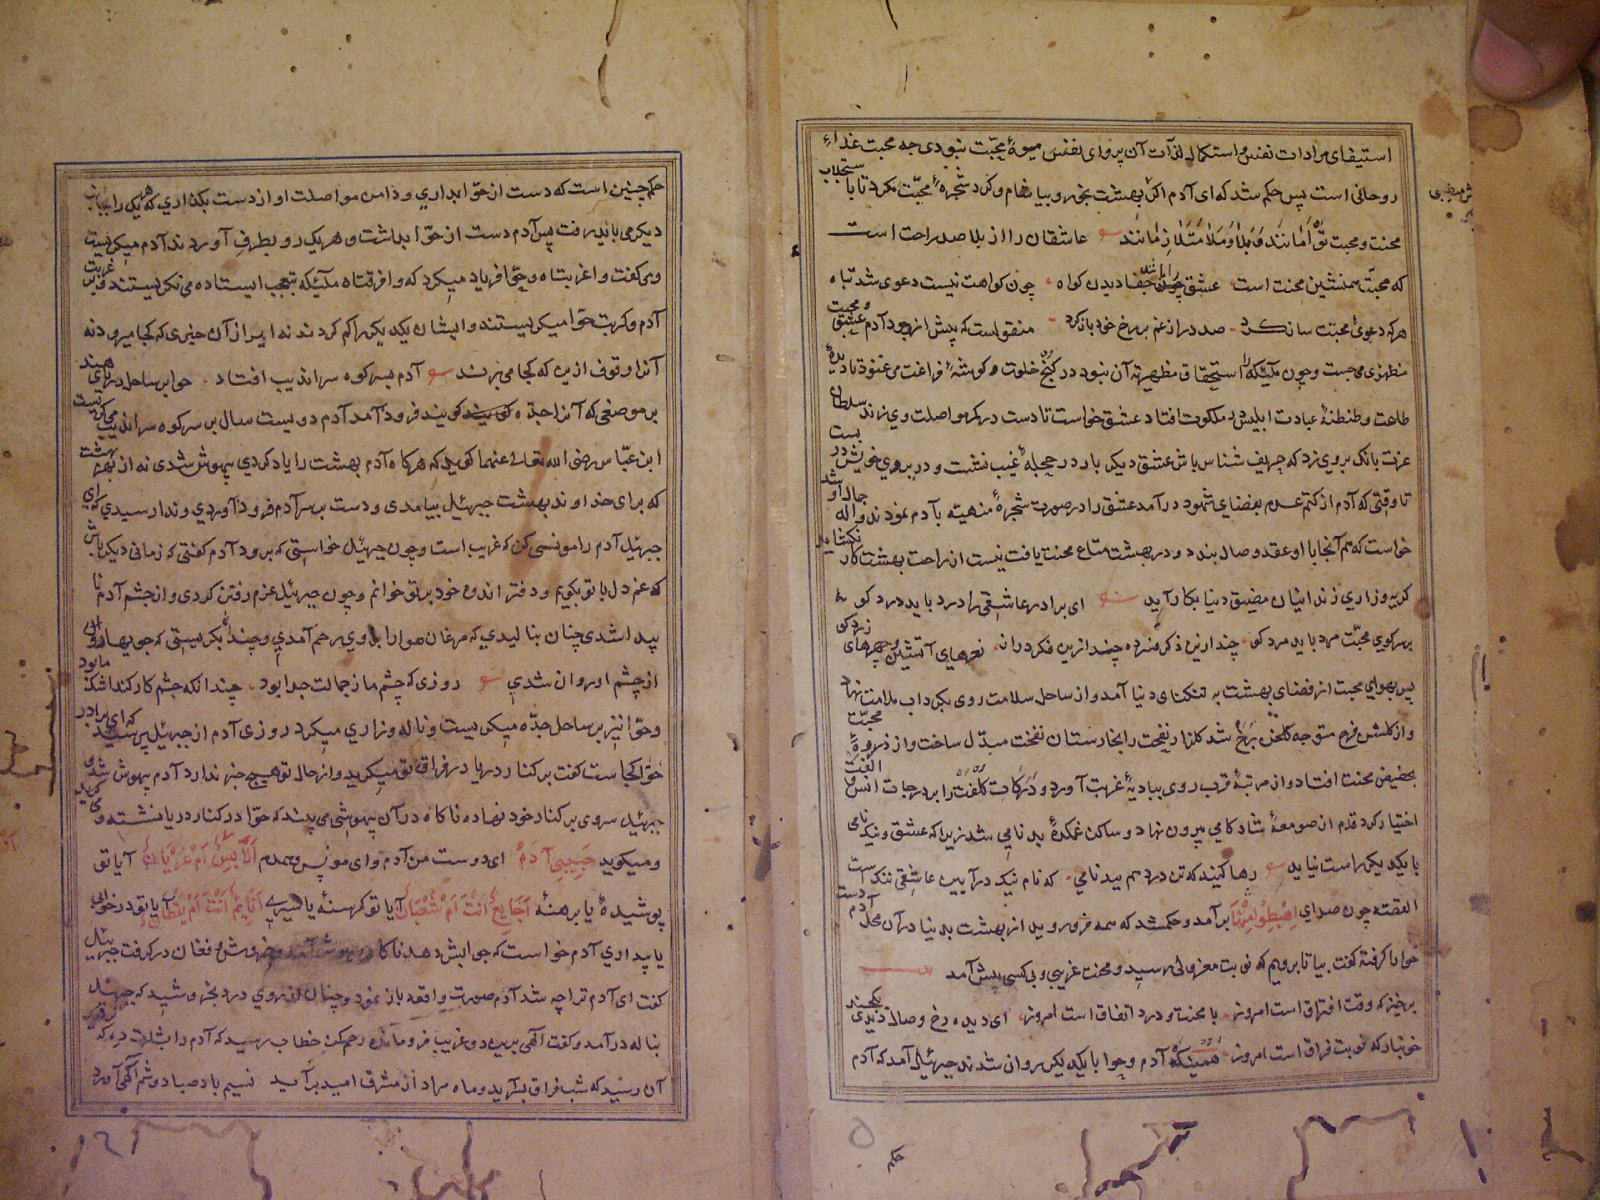 استیفای مرادات نفس و استکمال لذات آن پروای نفس میوهٔ محبّت نبودی جه محبت غذاء
روحانی است پس حکم شد که ای آدم اکل بهشت بخور و بیاشام و کرد شجرهٔ محبّت مکرد تا با
محنت و محبت عاشقان را از بلا صد راحت است
که محبّت همنشین محنت است عشق چون جفا دیدن کواه چون کواهت نیست دعوی شد تباه
هر که دعوئ محبت ساز کرد صد در از غم بر رخ خود باز کرد منقولست که پیش از وجود آدم عشق
مظهری می جست و چون ملئیکه را استحقاق مظهریه آن نبود در کنج خلوت و کوشهٔ فراغت می غنود تا دیدهٔ
طاعت و طنطنهٔ عبادت ابلیس در ملکوت افتاد عشق خواست تا دست در کمر مواصلت وی زند سلطان
عزت بانک بر وی زد که حریف شناس باش عشق دیکر بار در حجلهٔ غیب نشست و در بروی خویش در بست
تا وقتی که آدم از کتم عدم بفضای شهود درآمد عشق را در صورت شجرهٔ منهیه بآدم نمودند واله جمال او شد
خواست که هم آنجا با او عقد وصال بندد و در بهشت متاع محنت یافت نیست از راحت بهشت کار نکشاید
کریه و زاری زندانیان مضیق دنیا بکار آید ای برادر عاشقی را درد باید درد کو
بر سر کوی محبّت مرد باید مرد کو چند ازین ذکر فسرده چند ازین فکر دراز نعرهای آتشین و چهرهای زرد کو
پس بهوای محبت از فضای بهشت به تنکنای دنیا آمد و از ساحل سلامت روی بکرداب ملامت نهاد
و از کلشن فرح متوجه کلخن ترح شد کلزار نفحت را بخارستان نفخت مبدّل ساخت و از ذروهٔ محبّت
بحضیض محنت افتاد و از مرتبهٔ قرب روی ببادیهٔ غربت آورد و درکات کلفت را بر درجات انس و الفت
اختیار کرد قدم از صومعهٔ شاد کامی بیرون نهاد و ساکن غمکدهٔ بدنامی شد زیرا که عشق و نیکنامی
با یکدیکر راست نیاید رها کنید که تن در دهم ببدنامی که نام نیک در آیین عاشقی ننک است
القصّه چون صدای اِهْبِطُوا مِنْهَا برآمد و حکم شد که همه فرو روید از بهشت بدنیا در آن محل آدم دست
حوا را کرفته کفت بیا تا برویم که نوبت معزولی رسید و محنت غریبی و بی کسی پیش آمد
برخیز که وقت افتراق است امروز با محنت و درد اتفاق است امروز ای دیده رخ وصال دیدی یکچند
خونبار که نوبت فراق است امروز همینکه آدم و حوا با یکدیکر روان شدند جبرئیل آمد که آدم
حکم
۵
حکم چنین است که دست از حوّا بداری و دامن مواصلت او از دست بکذاری که هر یک را بجانب
دیکر می باید رفت پس آدم دست از حوّا بداشت و هر یک رو بطرفی آوردند آدم میکریست
و می کفت واغربتاه و حوّا فریاد میکرد که وافرقتاه ملئیکه بتعجب ایستاده می نکریستند و بر غربت
آدم و کربت حوّا میکریستند و ایشان یکدیکر را کم کردند نه این را از آن خبری که کجا میرود نه
آنرا وقوف ازین که کجا می برند آدم بسر کوه سراندیب افتاد حوا بر ساحل دریای هند
بر موضعی که آنرا جدّه کویند فرود آمد آدم دویست سال بر سر کوه سراندیب می کریست
ابن عبّاس رضی الله تعالی عنهما کوید که هر کاه آدم بهشت را یاد کردی بیهوش شدی نه از بهر بهشت
که برای خداوند بهشت جبرئیل بیامدی و دست بر سر آدم فرود آوردی و ندا رسیدی که ای
جبرئیل آدم را مونسی کن که غریب است و چون جبرئیل خواستی که برود آدم کفتی که زمانی دیکر باش
که غم دل با تو بکویم و دفتر اندوه خود بر تو خوانم و چون جبرئیل عزم رفتن کردی و از چشم آدم نا
پیدا شدی چنان بنالیدی که مرغان هوا را بر وی رحم آمدی و چندان بکریستی که جویهای آب
از چشم او روان شدی روزی که چشم ما ز جمالت جدا بود چندانکه چشم کار کند اشک ما بود
و حوّا نیز بر ساحل جدّه میکریست و ناله و زاری میکرد روزی آدم از جبرئیل پرسید که ای برادر
حوّا کجاست کفت بر کنار دریا در فراق تو میکرید و از حال تو هیچ خبر ندارد آدم بیهوش شد و
جبرئیل سر وی بر کنار خود نهاده ناکاه در آن بیهوشی می بیند که حوّا در کنار دریا نشسته و می کرید
و میکوید حَبِیبِی آدَمْ ای دوست من آدم و ای مونس و همدم اَلَابِسٌ اَمْ عُرْیَانٌ آیا تو
پوشیدهٔ یا برهنهٔ اَجَایِعٌ اَنْتَ اَمْ شَبْعَانٌ آیا تو کرسنهٔ یا سیری اَنَایِمٌ اَنْتَ اَمْ یَقْظَانٌ آیا تو در خوابی
یا بیداری آدم خواست که جوابش دهد ناکاه بهوش آمد و خروش و فغان در کرفت جبرئیل
کفت ای آدم ترا چه شد آدم صورت واقعه باز نمود و چنان از روی درد بخروشید که جبرئیل
بناله درآمد و کفت آلهی برین دو غریب فرو مانده رحم کن خطاب رسید که آدم را بشارت ده که
آن رسید که شب فراق بسر آید و ماه مراد از مشرق امید برآید نسیم باد صبا دوشم آکهی آورد